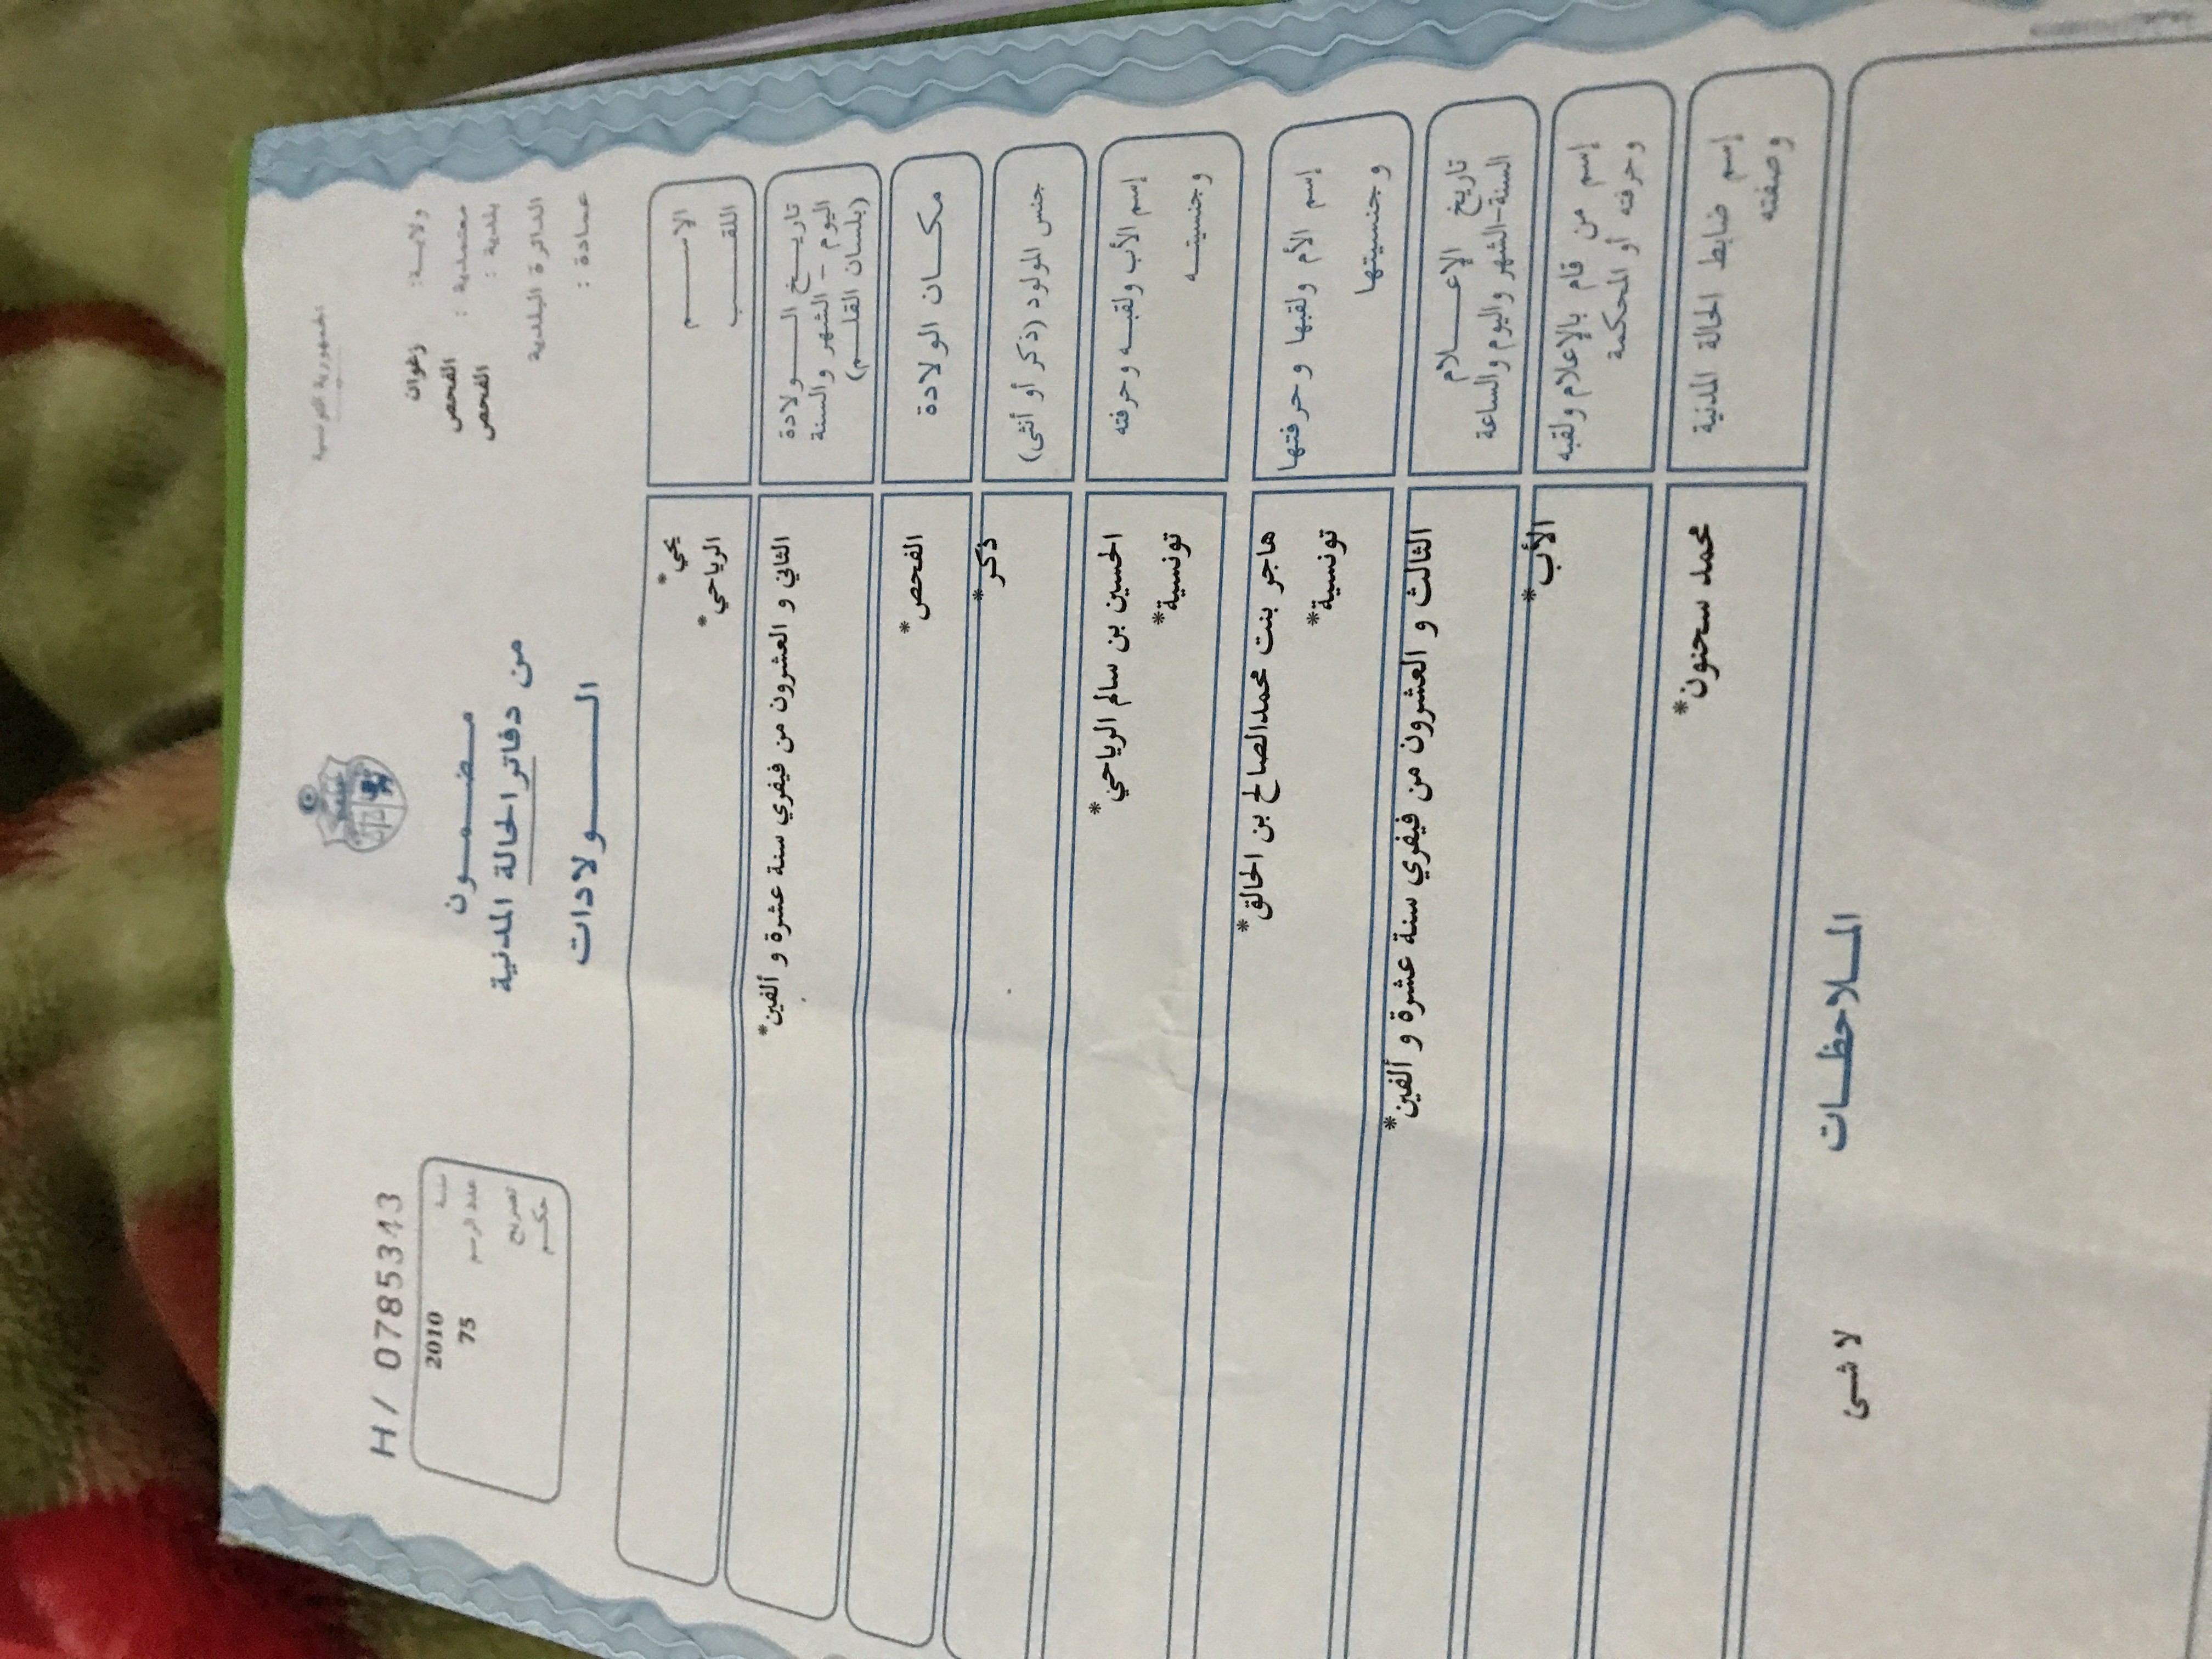 الجمهورية التونسية
ولاية: زغوان
معتمدية : الفحص
بلدية : الفحص
الدائرة البلدية
عمادة :
مضمون
من دفاتر الحالة المدنية
الولادات
H / 0785343
سنة 2010
عدد الرسم 75
تصريح
حكم
الاسم يحي*
اللقب الرياحي*
تاريخ الولادة الثاني و العشرون من فيفري سنة عشرة و ألفين*
اليوم - الشهر والسنة
(بلسان القلم)
مكان الولادة الفحص*
جنس المولود (ذكر أو أنثى) ذكر*
إسم الأب ولقبه وحرفته الحسين بن سالم الرياحي*
وجنسيته تونسية*
إسم الأم ولقبها وحرفتها هاجر بنت محمدالصالح بن الحالق*
وجنسيتها تونسية*
تاريخ الإعلام الثالث و العشرون من فيفري سنة عشرة و ألفين*
السنة-الشهر واليوم والساعة
إسم من قام بالإعلام ولقبه الأب*
وحرفته أو المحكمة
إسم ضابط الحالة المدنية محمد سحنون*
وصفته
الملاحظات
لا شئ